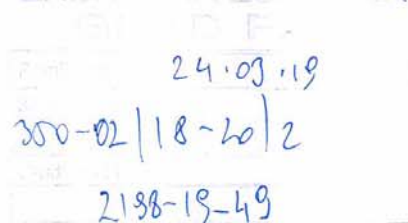 24.03.19
350-02/18-20/2
2198-19-49